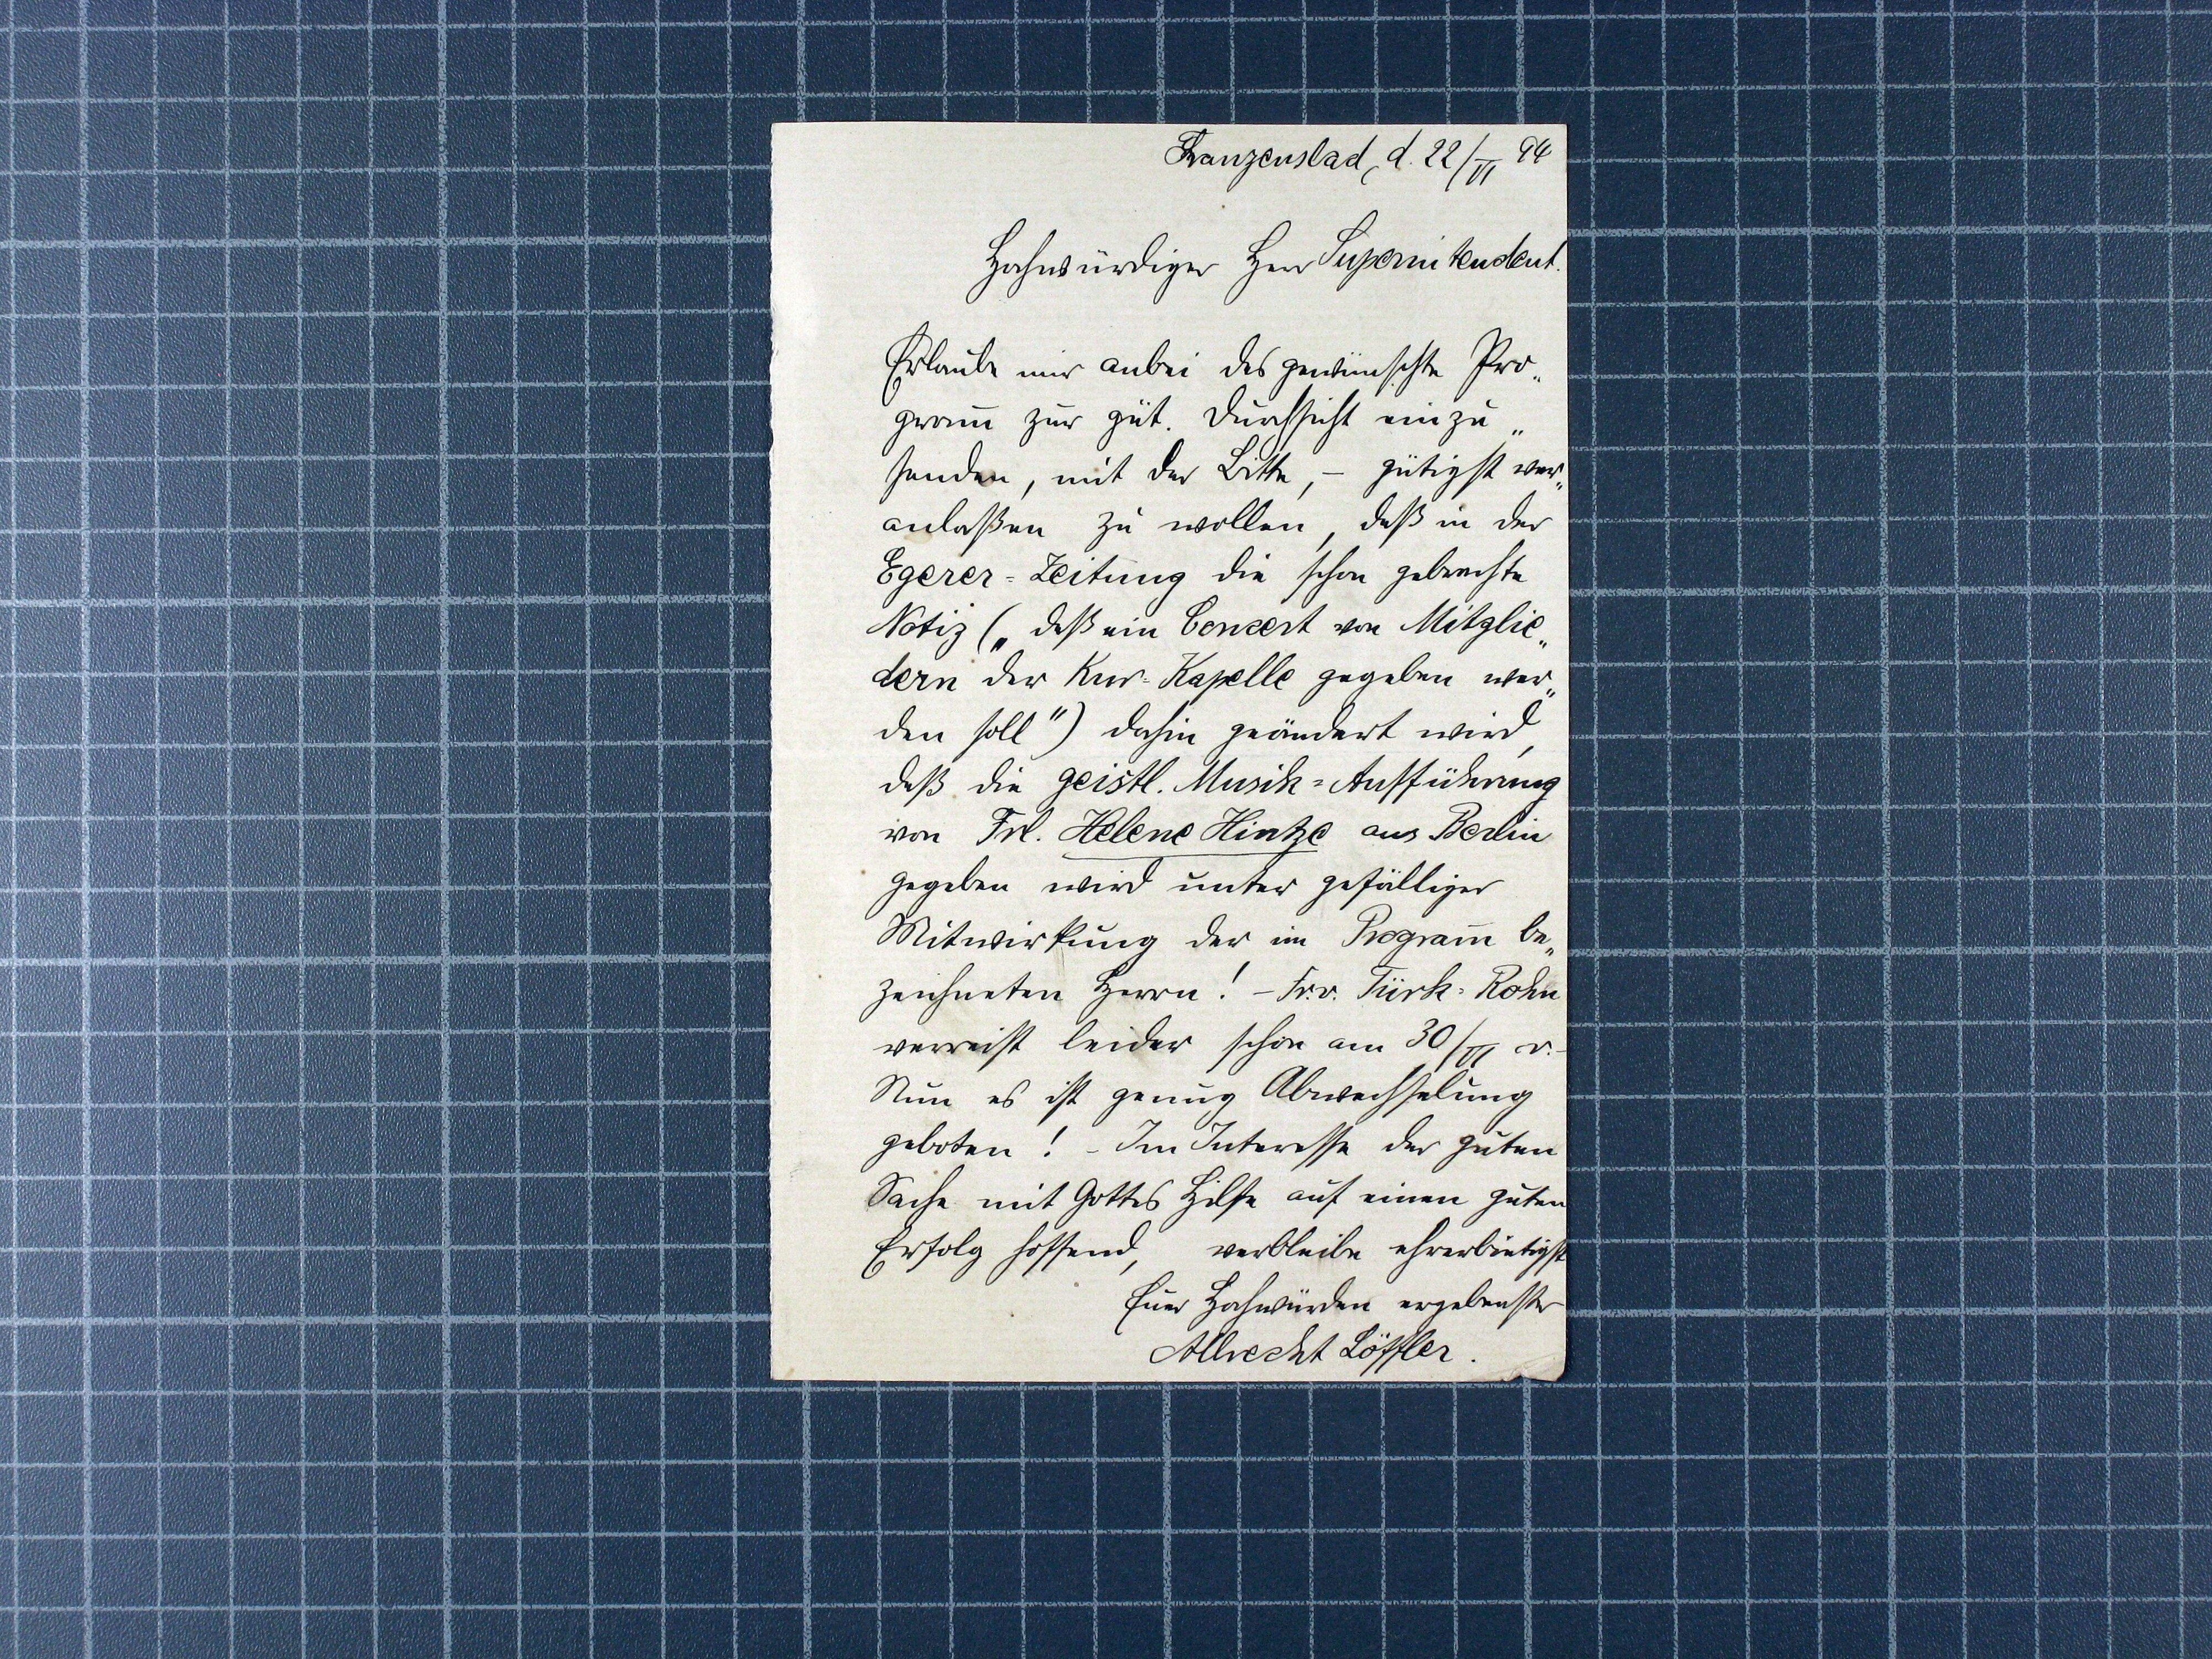 Franzensbad, d. 22/VI 94
Hochwürdiger Herr Superintendent.
Erlaube mir anbei das gewünschte Pro„
gram̄ zur güt. Durchsicht einzu„
senden, mit der Bitte, – gütigst ver„
anlaßen zu wollen, daß in der
Egerer=Zeitung die schon gebrachte
Notiz („daß ein Concert von Mitglie„
dern der Kur=Kapelle gegeben wer„
den soll") dahin geändert wird,
daß die geistl. Musik=Aufführung
von Frl. Helene Hintze aus Berlin
gegeben wird unter gefälliger
Mitwirkung der im Program̄ be„
zeichneten Herrn! – Fr. v. Türk=Rohn
verreist leider schon am 30/VI
Nun es ist genug Abwechselung
geboten! – Im Interesse der guten
Sache mit Gottes Hilfe auf einen guten
Erfolg hoffend, verbleibe ehrerbietigst
Euer Hochwürden ergebenster
Albrecht Löffler.